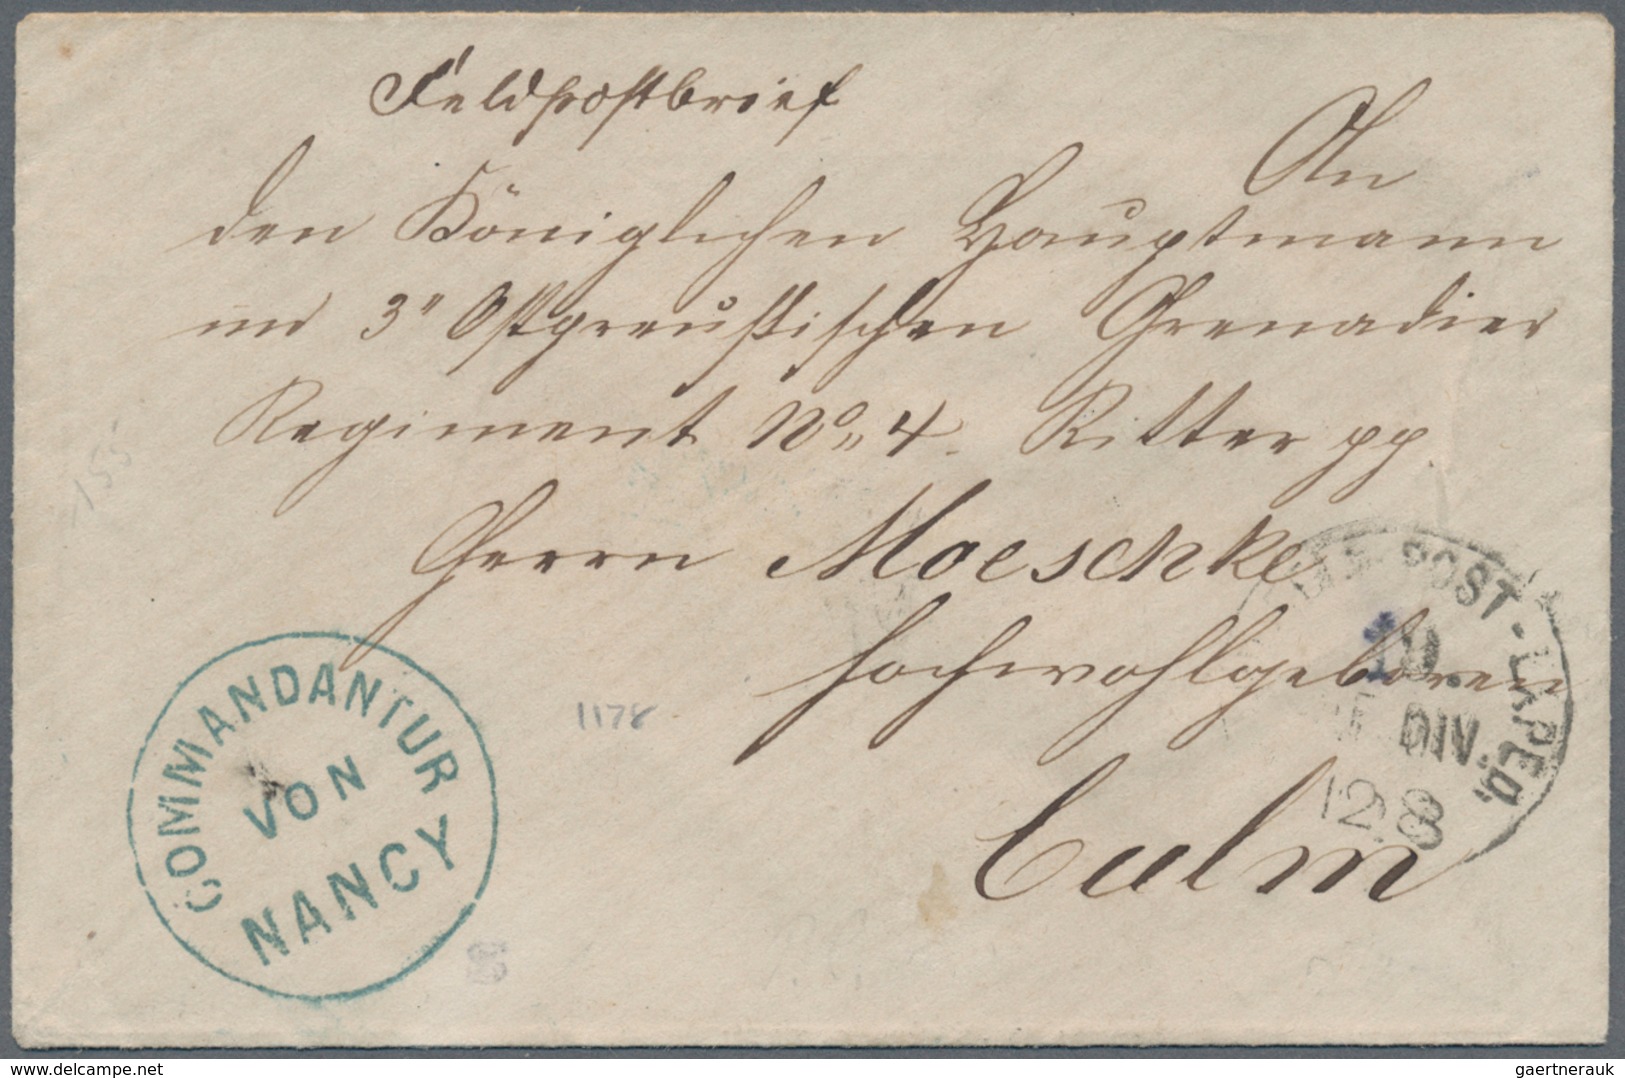 Feldpostbrief
An
den Königlichen Hauptmann
im 3" Ostpreußischen Grenadier
Regiment No 4. Ritter pp
Herrn Moeschke
Hochwohlgeboren
Culm
COMMANDANTUR
VON
NANCY
POST-EXPED.
DIV.
128
1178
155
www.delcampe.net
gaertnerauk